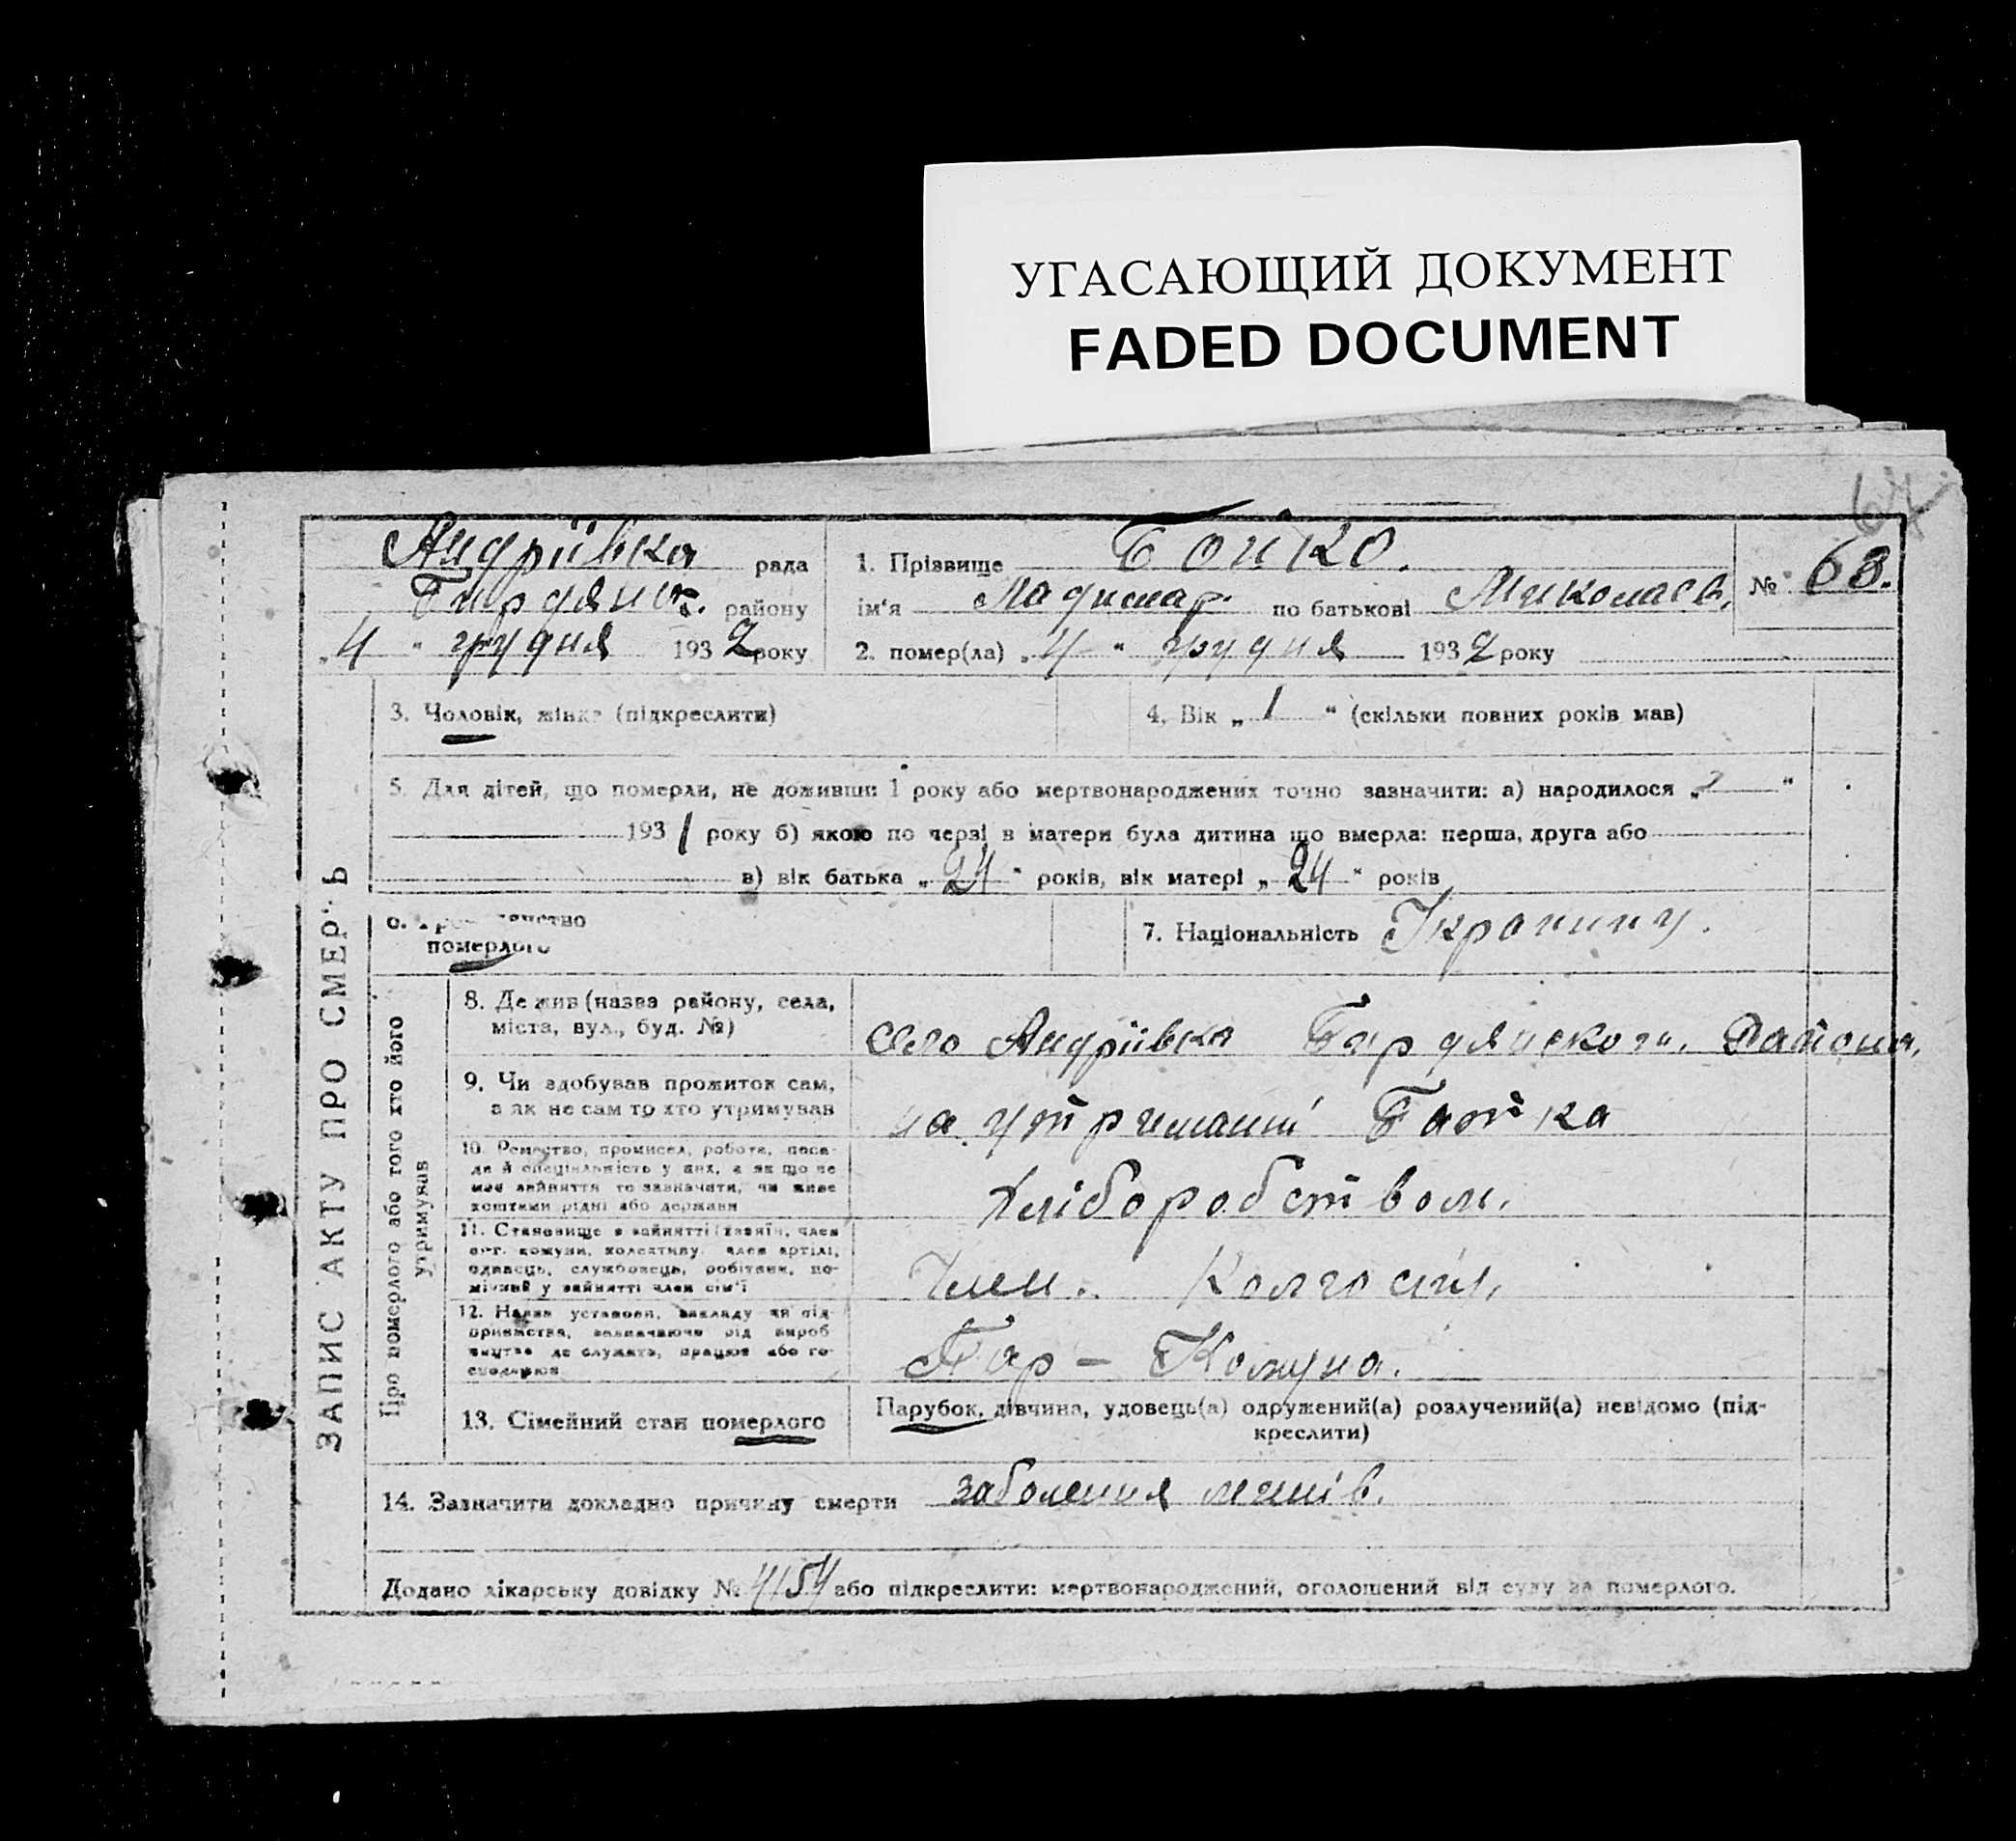 УГАСАЮЩИЙ ДОКУМЕНТ
FADED DOCUMENT
67
Андріївка рада
Бирдянск. району
„4“ грудня 1932 року
1. Прізвище Бойко.
ім‘я по батькові Миколаєв.
№ 63.
2. помер(ла) „4“ грудня 1932 року
ЗАПИС АКТУ ПРО СМЕРТЬ
3. Чоловік, жінка (підкреслити)
4. Вік „1“ (скільки повних років мав)
5. Для дітей, що померли, не доживши 1 року або мертвонароджених точно зазначити: а) народилося „ “
1931 року б) якою по черзі в матери була дитина що вмерла: перша, друга або
в) вік батька „24“ років, вік матері „24“ років
6. померлого
7. Національність
Про померлого або того хто його
утримував
8. Де жив (назва району, села,
міста, вул., буд. №)
Село Андріївка Бирдянского. Району.
9. Чи здобував прожиток сам,
а як не сам то хто утримував
на утриманні Батька
10. Ремество, промисел, робота, поса-
да й спеціяльність у них, а як що не
має зайняття то зазначити, чи живе
коштами рідні або держави
Хліборобством.
11. Становище в зайнятті (хазяїн, член
с-г. комуни, колективу, член артілі,
одинець, службовець, робітник, по-
мічний у зайнятті член сім‘ї
Член. Колгоспу.
12. Назва установи, закладу чи під-
приємства, зазначаючи рід вироб
ництва де служить, працює або го-
сподарює
Пар - Комуна.
13. Сімейний стан померлого
Парубок, дівчина, удовець(а) одружений(а) розлучений(а) невідомо (під-
креслити)
14. Зазначити докладно причину смерти заболення легенів.
Додано лікарську довідку № 4154 або підкреслити: мертвонароджений, оголошений від суду за померлого.